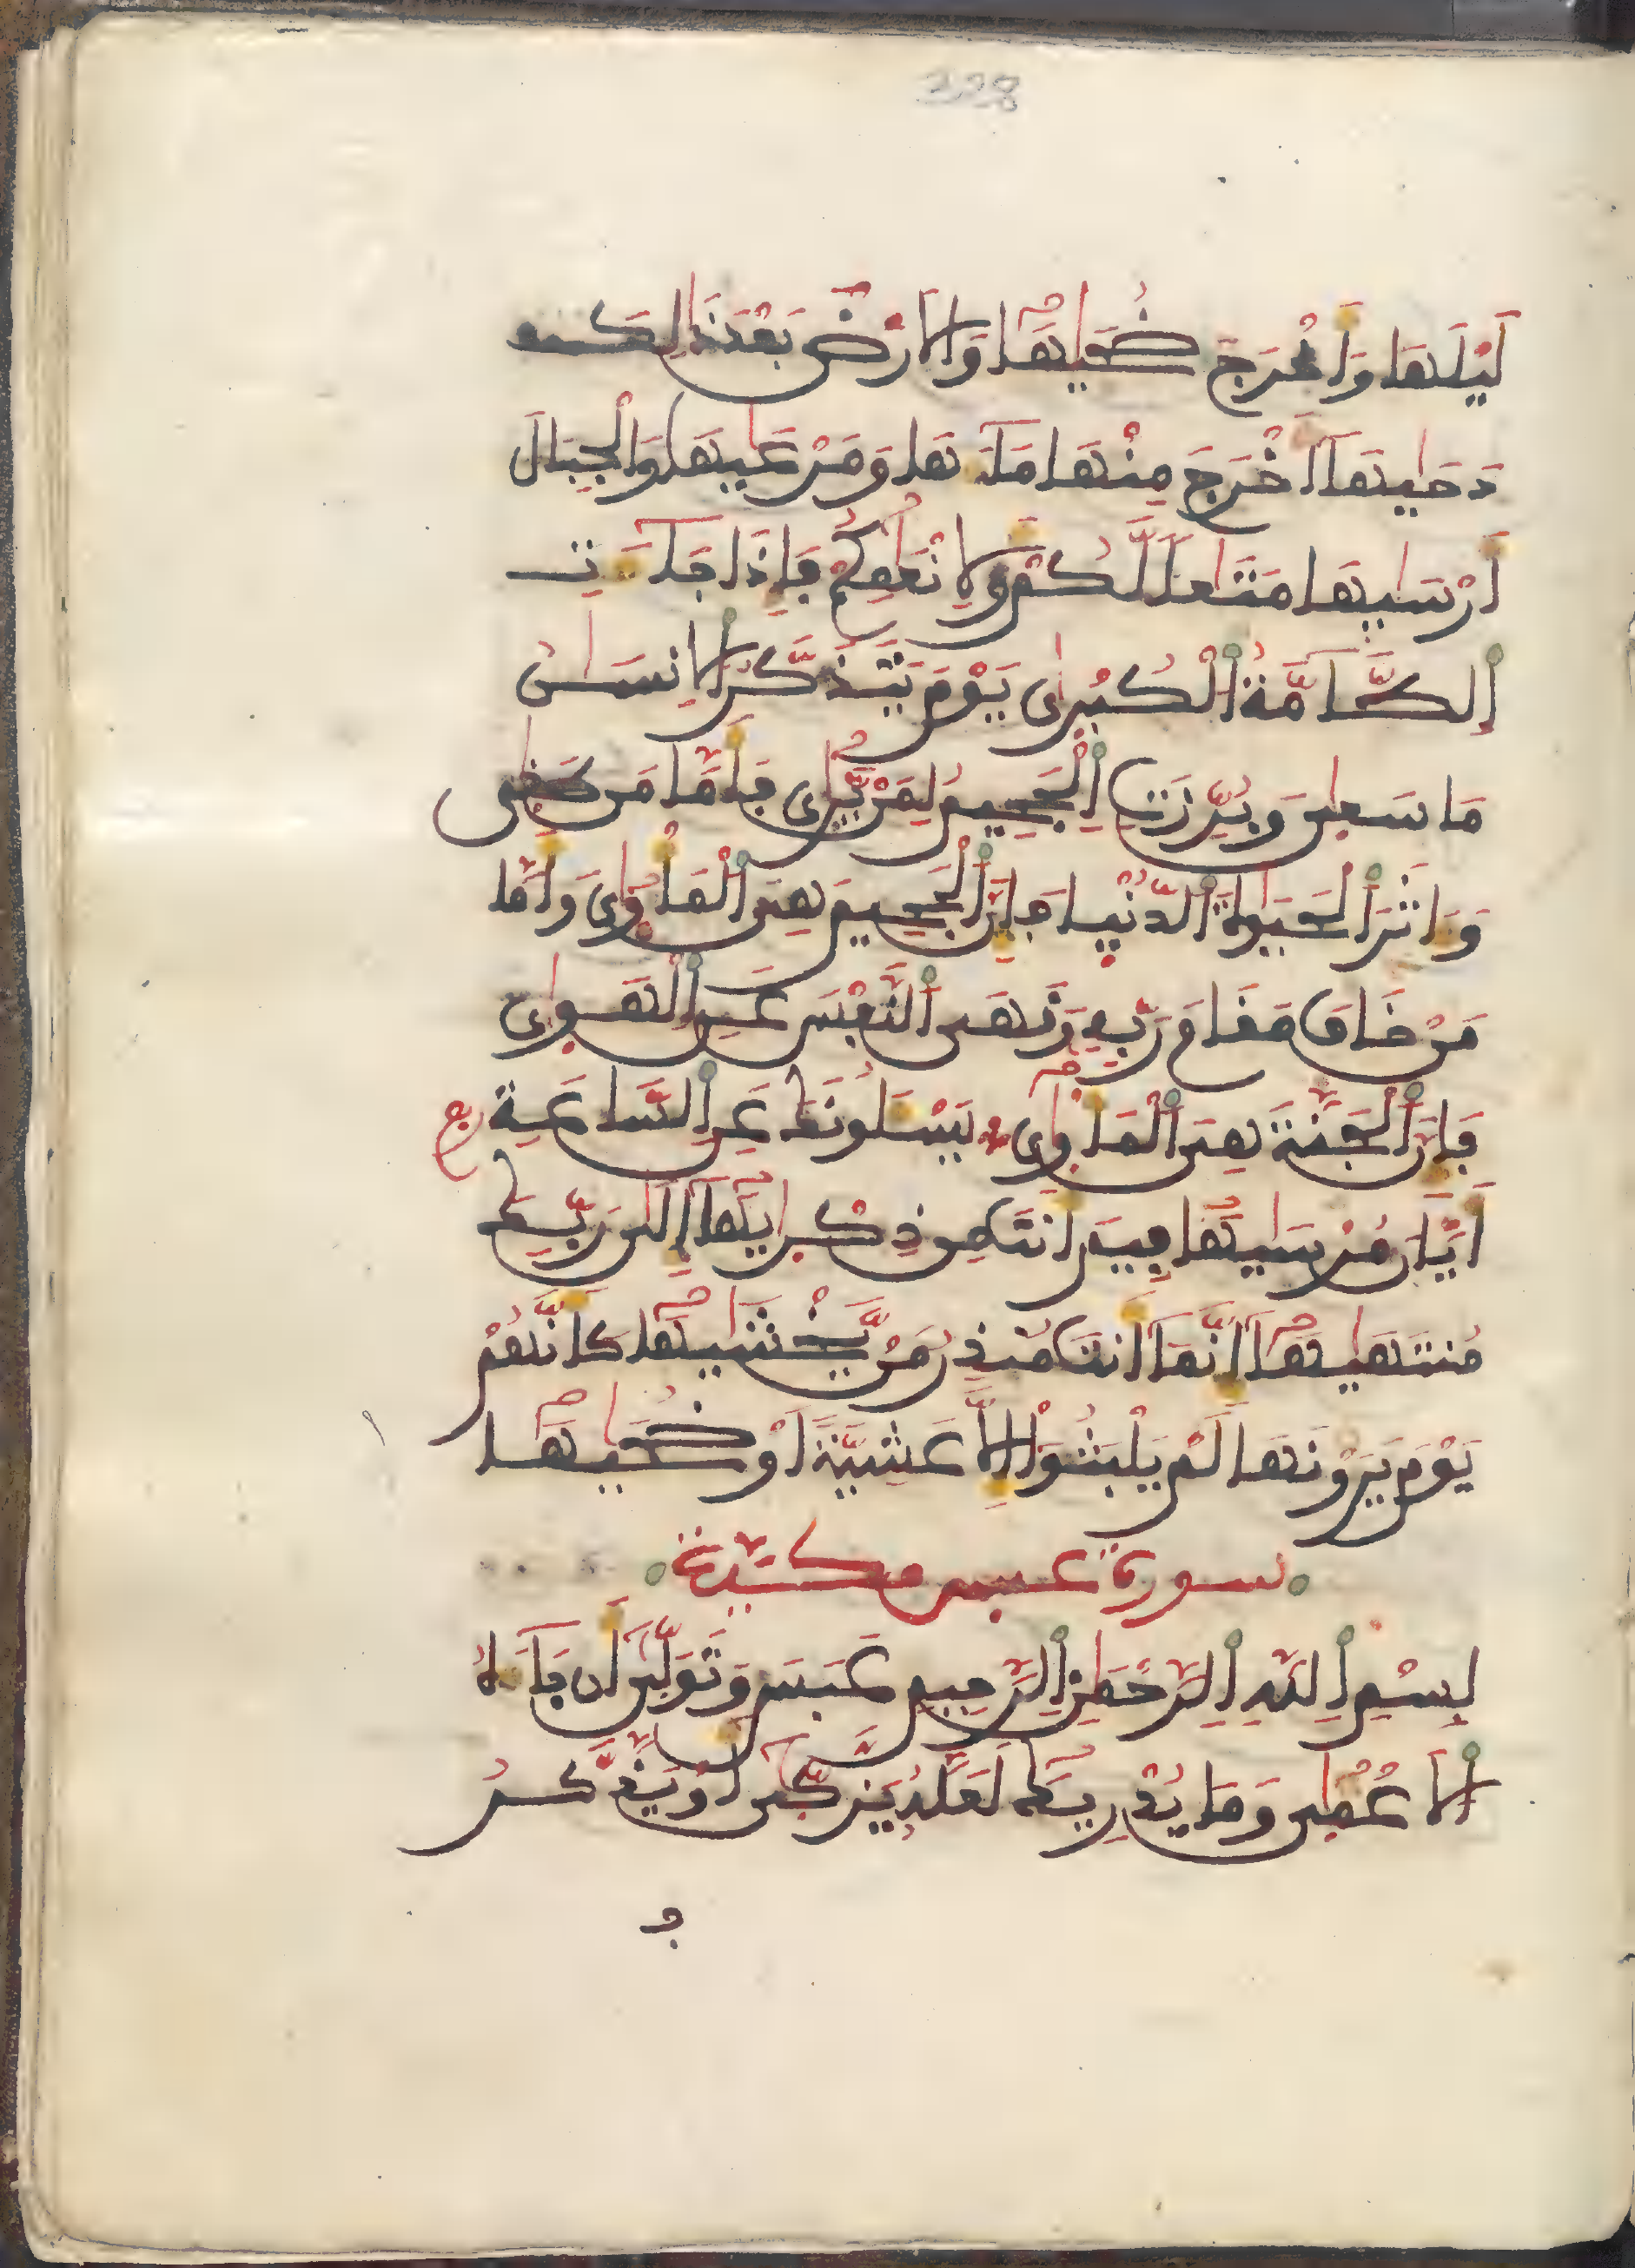 228
لَيْلَهَا وَأَخْرَجَ ضُحَيٰهَا وَالَارْضَ بَعْدَ ذَٰلِكَ
دَحَيٰهَا أَخْرَجَ مِنْهَا مَآءَهَا وَمَرْعَيٰهَا وَالْجِبَالَ
أَرْسَيٰهَا مَتَٰعاً لَّكُمْ وَلِأَنْعَٰمِكُمْ فَإِذَا جَآءَتِ
اِ۬لطَّآمَّةُ اُ۬لْكُبْرَىٰ يَوْمَ يَتَذَكَّرُ اُ۬لِانسَٰنُ
مَا سَعَىٰ وَبُرِّزَتِ اِ۬لْجَحِيمُ لِمَنْ يَّرَىٰ فَأَمَّا مَن طَغَىٰ
وَءَاثَرَ اَ۬لْحَيَوٰةَ اَ۬لدُّنْيَا فَإِنَّ اَ۬لْجَحِيمَ هِىَ اَ۬لْمَأْوَىٰ وَأَمَّا
مَنْ خَافَ مَقَامَ رَبِّهِ وَنَهَى اَ۬لنَّفْسَ عَنِ اِ۬لْهَوَىٰ
فَإِنَّ اَ۬لْجَنَّةَ هِىَ اَ۬لْمَأْوَىٰ يَسْـَٔلُونَكَ عَنِ اِ۬لسَّاعَةِ
أَيَّانَ مُرْسَيٰهَا فِيمَ أَنتَ مِن ذِكْرَيٰهَآ إِلَىٰ رَبِّكَ
مُنتَهَيٰهَآ إِنَّمَآ أَنتَ مُنذِرُ مَنْ يَّخْشَيٰهَا كَأَنَّهُمْ
يَوْمَ يَرَوْنَهَا لَمْ يَلْبَثُوٓاْ إِلَّا عَشِيَّةً أَوْ ضُحَيٰهَا
سورة عبس مكية
بِسْمِ اِ۬للَّهِ اِ۬لرَّحْمَٰنِ اِ۬لرَّحِيمِ عَبَسَ وَتَوَلَّىٰٓ أَن جَآءَهُ
اُ۬لَاعْمَىٰ وَمَا يُدْرِيكَ لَعَلَّهُ يَزَّكَّىٰٓ أَوْ يَذَّكَّرُ